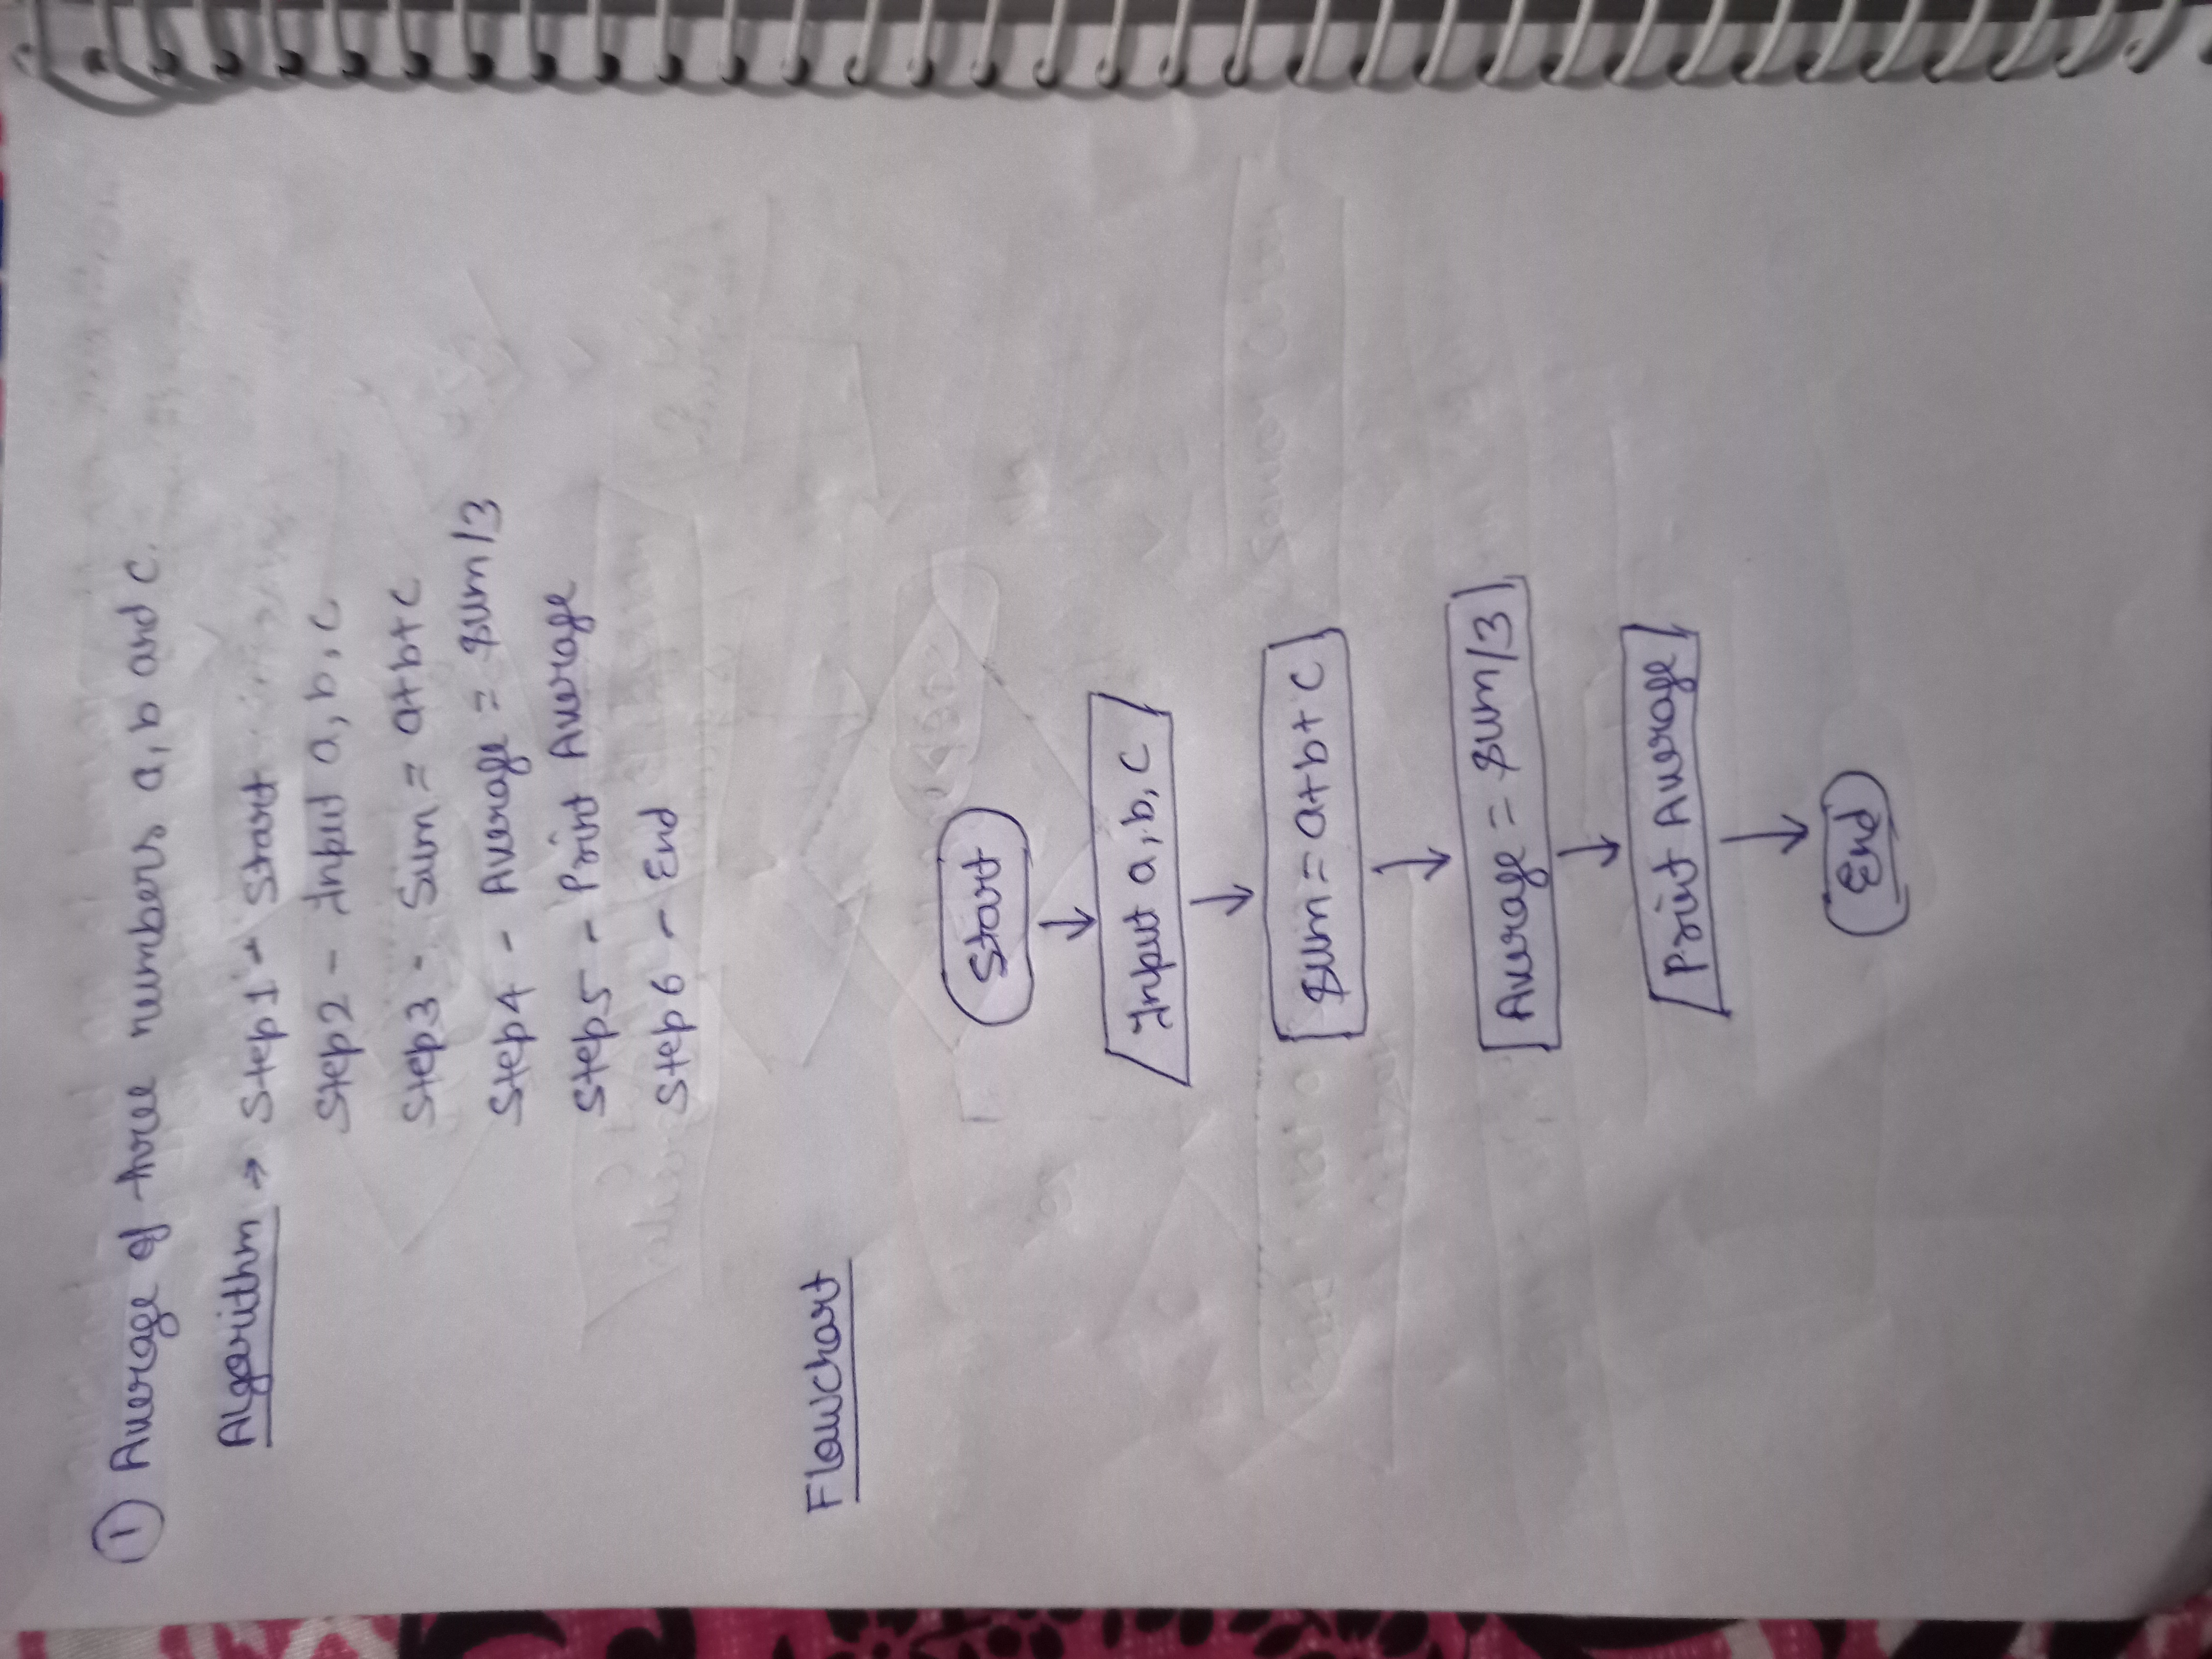 1 Average of three numbers a, b and c.
Algorithm → Step1 - Start
Step2 - Input a, b, c
Step3 - Sum = a+b+c
Step4 - Average = Sum/3
Step5 - Print Average
Step6 - End
Flowchart
Start
Input a, b, c
Sum = a+b+c
Average = Sum/3
Print Average
End